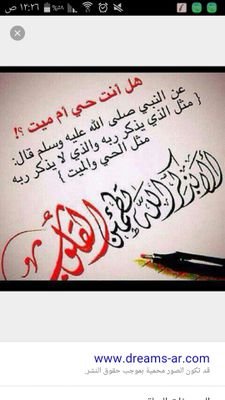 ١٢:٢٦ ص
هل أنت حي أم ميت ؟!
عن النبي صلى الله عليه وسلم قال:
{ مثل الذي يذكر ربه والذي لا يذكر ربه
مثل الحي والميت }
ألا بذكر الله تطمئن القلوب
www.dreams-ar.com
قد تكون الصور محمية بموجب حقوق النشر.